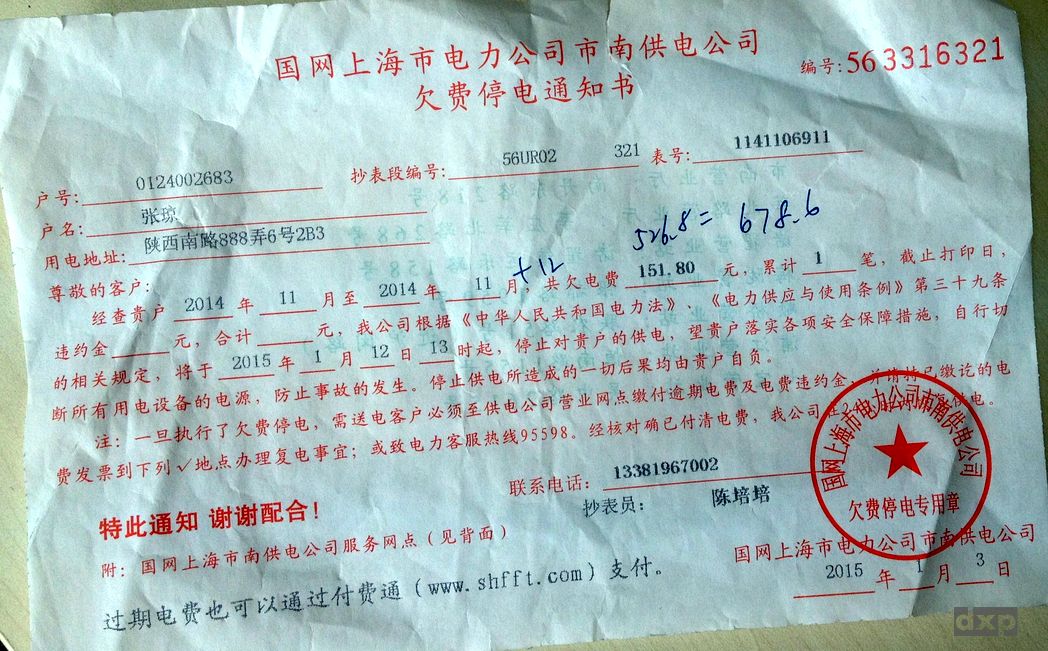 国网上海市电力公司市南供电公司
编号:563316321
欠费停电通知书
户号: 0124002683 抄表段编号: 56UR02 321 表号: 1141106911
户名: 张琼
用电地址: 陕西南路888弄6号2B3
526.8 = 678.6
尊敬的客户:
+12
经查贵户 2014 年 11 月至 2014 年 11 月, 共欠电费 151.80 元, 累计 1 笔, 截止打印日,
违约金 元, 合计 元, 我公司根据《中华人民共和国电力法》、《电力供应与使用条例》第三十九条
的相关规定, 将于 2015 年 1 月 12 日 13 时起, 停止对贵户的供电, 望贵户落实各项安全保障措施, 自行切
断所有用电设备的电源, 防止事故的发生。停止供电所造成的一切后果均由贵户自负。
注: 一旦执行了欠费停电, 需送电客户必须至供电公司营业网点缴付逾期电费及电费违约金, 并请持已缴讫的电
费发票到下列√地点办理复电事宜; 或致电力客服热线95598。经核对确已付清电费, 我公司 供电。
联系电话: 13381967002
抄表员: 陈培培
特此通知 谢谢配合!
附: 国网上海市南供电公司服务网点 (见背面)
过期电费也可以通过付费通 (www.shfft.com) 支付。
国网上海市电力公司市南供电公司
欠费停电专用章
国网上海市电力公司市南供电公司
2015 年 1 月 3 日
dxp